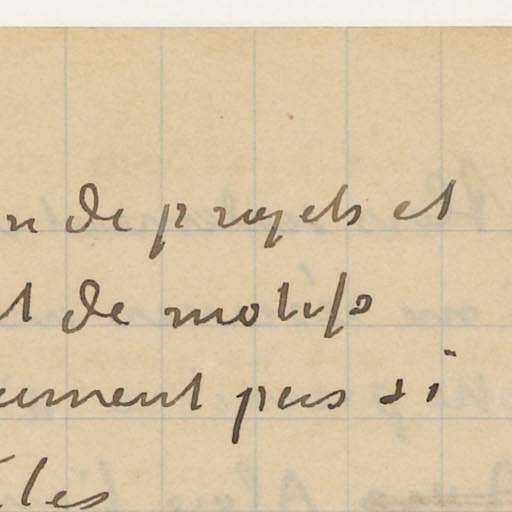 n de projets et
t de motifs
ument pas si
les